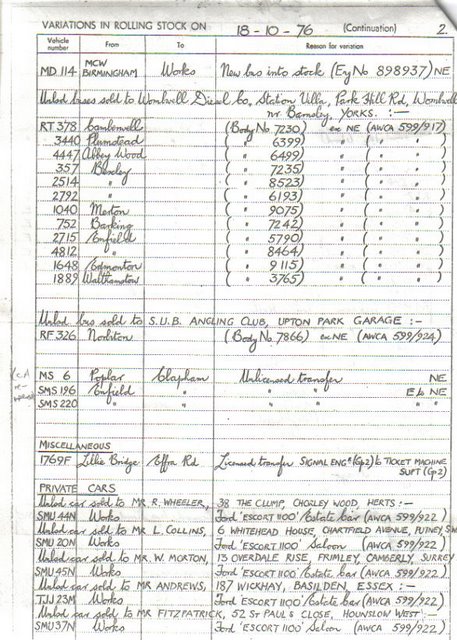 VARIATIONS IN ROLLING STOCK ON 18-10-76 (Continuation) 2.
Vehicle number From To Reason for variation
MD 114 MCW BIRMINGHAM Works New bus into stock (Eng No 898937) NE
Unlcd buses sold to Wombwell Diesel Co, Station Villa, Park Hill Rd, Wombwell
nr Barnsley, YORKS. :—
RT 378 Camberwell (Body No 7230) ex NE (AWCA 599/917)
3440 Plumstead ( " 6399) " ( " " )
4447 Abbey Wood ( " 6499) " ( " " )
357 Bexley ( " 7235) " ( " " )
2514 " ( " 8523) " ( " " )
2792 " ( " 6193) " ( " " )
1040 Merton ( " 9075) " ( " " )
752 Barking ( " 7242) " ( " " )
2715 Enfield ( " 5790) " ( " " )
4812 " ( " 8464) " ( " " )
1648 Edmonton ( " 9115) " ( " " )
1889 Walthamstow ( " 3765) " ( " " )
Unlcd bus sold to S.U.B. ANGLING CLUB, UPTON PARK GARAGE :—
RF 326 Norbiton (Body No 7866) ex NE (AWCA 599/924)
MS 6 Poplar Clapham Unlicensed transfer NE
SMS 196 Enfield " " " E to NE
SMS 220 " " " " "
MISCELLANEOUS
1769F Lillie Bridge Effra Rd Licensed transfer SIGNAL ENGR (Gp2) to TICKET MACHINE
SUPT (Gp2)
PRIVATE CARS
Unlcd car sold to MR R. WHEELER, 38 THE CLUMP, CHORLEY WOOD, HERTS :—
SMU 44N Works Ford 'ESCORT 1100' Estate Car (AWCA 599/922)
Unlcd car sold to MR L. COLLINS, 6 WHITEHEAD HOUSE, CHARTFIELD AVENUE, PUTNEY SW
SMU 20N Works Ford 'ESCORT 1100' Saloon (AWCA 599/922)
Unlcd car sold to MR. W. MORTON, 13 OVERDALE RISE, FRIMLEY, CAMBERLY, SURREY
SMU 45N Works Ford 'ESCORT 1100' Estate car (AWCA 599/922)
Unlcd car sold to MR ANDREWS, 187 WICKHAY, BASILDEN ESSEX :—
TJJ 23M Works Ford ESCORT 1100' Estate car (AWCA 599/922)
Unlcd car sold to MR FITZPATRICK, 52 ST PAUL'S CLOSE, HOUNSLOW WEST :—
SMU 37N Works Ford 'ESCORT 1100' Saloon (AWCA 599/922)